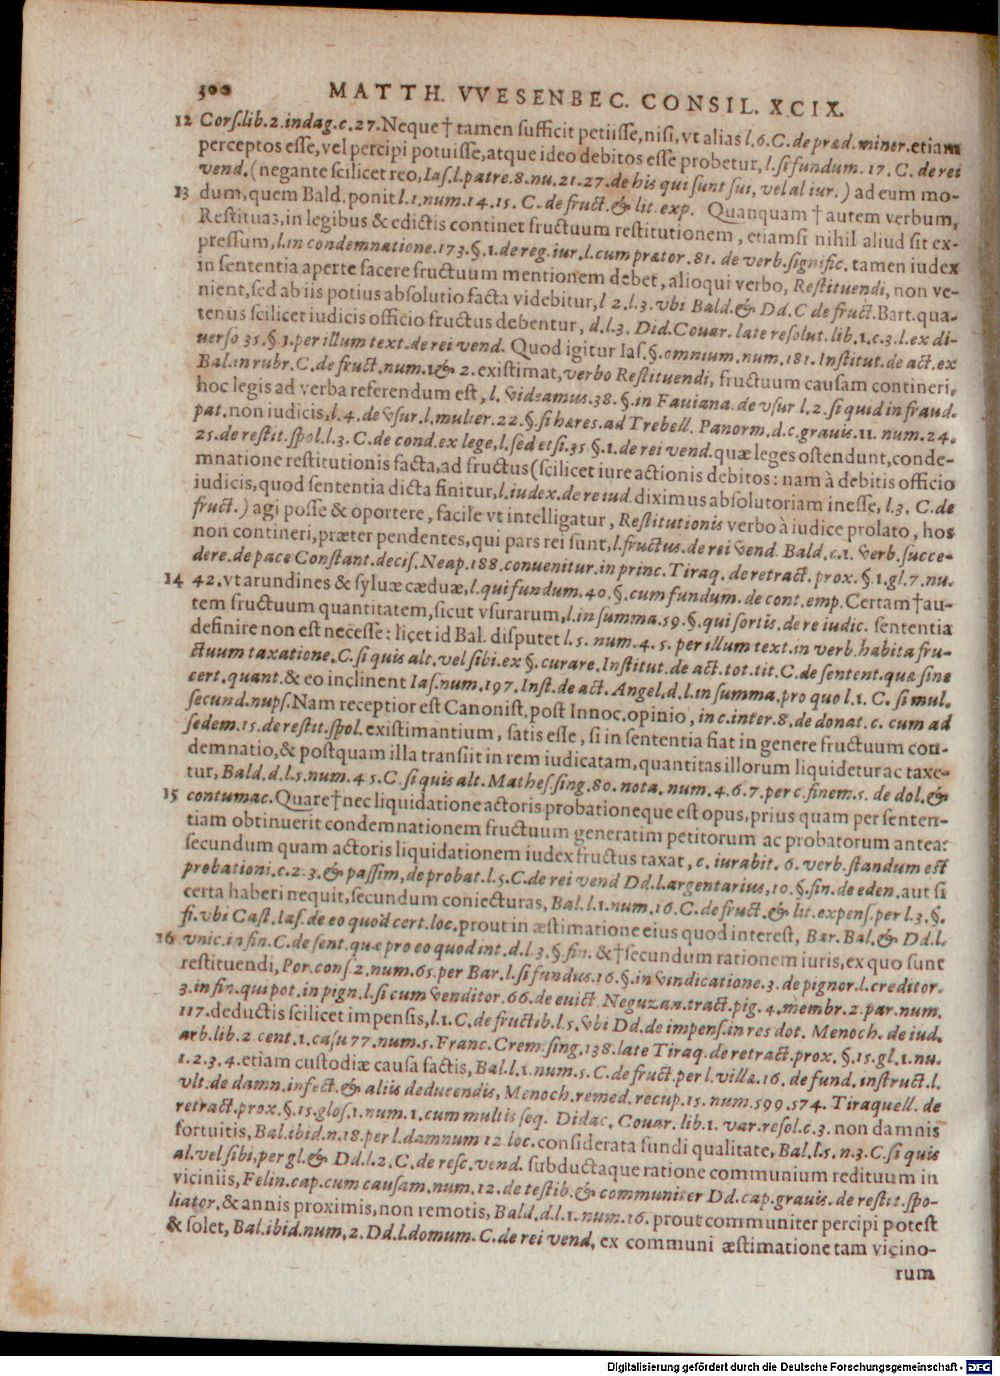 300 MATTH. VVESENBEC. CONSIL. XCIX.
12 Corſ.lib.2.indag.c.27. Neque † tamen ſufficit petiiſſe, niſi, vt alias l.6.C. de præd.miner. etiam
perceptos eſſe, vel percipi potuiſſe, atque ideo debitos eſſe probetur, l.ſi fundum. 17. C. de rei
vend. (negante ſcilicet reo, Iaſ.l.patre.8.nu.21.27.de his qui ſunt ſui, vel al iur.) ad eum mo-
13 dum, quem Bald. ponit l.1.num.14.15. C. de fruct.& lit.exp. Quanquam † autem verbum,
Reſtituas, in legibus & edictis continet fructuum reſtitutionem, etiamſi nihil aliud ſit ex-
preſſum, l.in condemnatione.173.§.1.de reg.iur.l.cum prætor.81. de verb.ſignific. tamen iudex
in ſententia aperte facere fructuum mentionem debet, alioqui verbo, Reſtituendi, non ve-
nient, ſed ab iis potius abſolutio facta videbitur, l 2.l.3.vbi Bald.& Dd.C de fruct. Bart. qua-
tenus ſcilicet iudicis officio fructus debentur, d.l.3. Did.Couar.late reſolut.lib.1.c.3.l.ex di-
uerſo 35.§ 1.per illum text.de rei vend. Quod igitur Iaſ.§.omnium.num.181. Inſtitut.de act.ex
Bal.in rubr.C.de fruct.num.1& 2. exiſtimat, verbo Reſtituendi, fructuum cauſam contineri,
hoc legis ad verba referendum eſt, l. videamus.38.§.in Fauiana.de vſur l.2.ſi quid in fraud.
pat. non iudicis, l.4.de vſur.l.mulier.22.§.ſi hæres.ad Trebell. Panorm.d.c.grauis.11.num.24.
25.de reſtit.ſpol.l.3. C.de cond.ex lege, l.ſed etſi.35 §.1.de rei vend. quæ leges oſtendunt, conde-
mnatione reſtitutionis facta, ad fructus (ſcilicet iure actionis debitos: nam à debitis officio
iudicis, quod ſententia dicta finitur, l.iudex.de re iud diximus abſolutoriam ineſſe, l.3. C.de
fruct.) agi poſſe & oportere, facile vt intelligatur, Reſtitutionis verbo à iudice prolato, hos
non contineri, præter pendentes, qui pars rei ſunt, l.fructus.de rei vend Bald.c.1. verb.ſucce-
dere.de pace Conſtant.deciſ.Neap.188.conuenitur.in princ.Tiraq.de retract.prox.§.1.gl.7.nu.
14 42. vt arundines & ſyluæ cæduæ, l.qui fundum.40.§.cum fundum.de cont.emp. Certam † au-
tem fructuum quantitatem, ſicut vſurarum, l.in ſumma.59.§.qui ſortis.de re iudic. ſententia
definire non eſt neceſſe: licet id Bal. diſputet l.5.num.4.5.per illum text.in verb.habita fru-
ctuum taxatione.C.ſi quis alt.vel ſibi.ex §.curare.Inſtitut.de act.tot.tit.C.de ſentent.quæ ſine
cert.quant. & eo inclinent Iaſ.num.197.Inſt.de act.Angel.d.l.in ſumma.pro quo l.1. C. ſi mul.
ſecund.nupſ. Nam receptior eſt Canoniſt. poſt Innoc. opinio, in c.inter.8.de donat.c. cum ad
ſedem.15.de reſtit.ſpol. exiſtimantium, ſatis eſſe, ſi in ſententia fiat in genere fructuum con-
demnatio, & poſtquam illa tranſiit in rem iudicatam, quantitas illorum liquidetur ac taxe-
tur, Bald.d.l.5.num.45.C.ſi quis alt.Matheſ.ſing.80.nota.num.4.6.7.per c.finem.5. de dol.&
15 contumac. Quare † nec liquidatione actoris probationeque eſt opus, prius quam per ſenten-
tiam obtinuerit condemnationem fructuum generatim petitorum ac probatorum antea:
ſecundum quam actoris liquidationem iudex fructus taxat, c. iurabit. 6. verb.ſtandum eſt
probationi.c.2.3.& paſſim, de probat.l.5.C.de rei vend Dd.l.argentarius,10.§.fin.de eden. aut ſi
certa haberi nequit, ſecundum coniecturas, Bal.l.1.num.16.C.de fruct.& lit.expenſ.per l.3.§.
fi.vbi Caſt.Iaſ.de eo quod cert.loc. prout in æſtimatione eius quod intereſt, Bar.Bal.& Dd.l.
16 vnic.in fin.C.de ſent.quæ pro eo quod int.d.l.3.§ fin. & † ſecundum rationem iuris, ex quo ſunt
reſtituendi, Por.conſ.2.num.65.per Bar.l.ſi fundus.16.§.in vindicatione.3.de pignor.l.creditor.
3.in fin.qui pot.in pign.l.ſi cum venditor.66.de euict.Neguzan.tract.pig.4.membr.2.par.num.
117. deductis ſcilicet impenſis, l.1.C.de fructib.l.5.vbi Dd.de impenſ.in res dot. Menoch.de iud.
arb.lib.2.cent.1.caſu 77.num.5.Franc.Crem.ſing.138.late Tiraq.de retract.prox.§.15.gl.1.nu.
1.2.3.4. etiam cuſtodiæ cauſa factis, Bal.l.1.num.5.C.de fruct.per l.villæ.16.de fund.inſtruct.l.
vlt.de damn.infect.& aliis deducendis, Menoch.remed.recup.15.num.599.574. Tiraquell. de
retract.prox.§.15.gloſ.1.num.1.cum multis ſeq. Didac. Couar. lib.1. var.reſol.c.3. non damnis
fortuitis, Bal.ibid.n.18.per l.damnum 12 loc. conſiderata fundi qualitate, Bal.l.5.n.3.C.ſi quis
al.vel ſibi, per gl.& Dd.l.2.C.de reſc.vend. ſubductaque ratione communium redituum in
viciniis, Felin.cap.cum cauſam.num.12.de teſtib.& communiter Dd.cap.grauis.de reſtit.ſpo-
liator. & annis proximis, non remotis, Bald.d.l.1.num.16. prout communiter percipi poteſt
& ſolet, Bal.ibid.num.2.Dd.l.domum.C.de rei vend. ex communi æſtimatione tam vicino-
rum
Digitalisierung gefördert durch die Deutsche Forschungsgemeinschaft - DFG